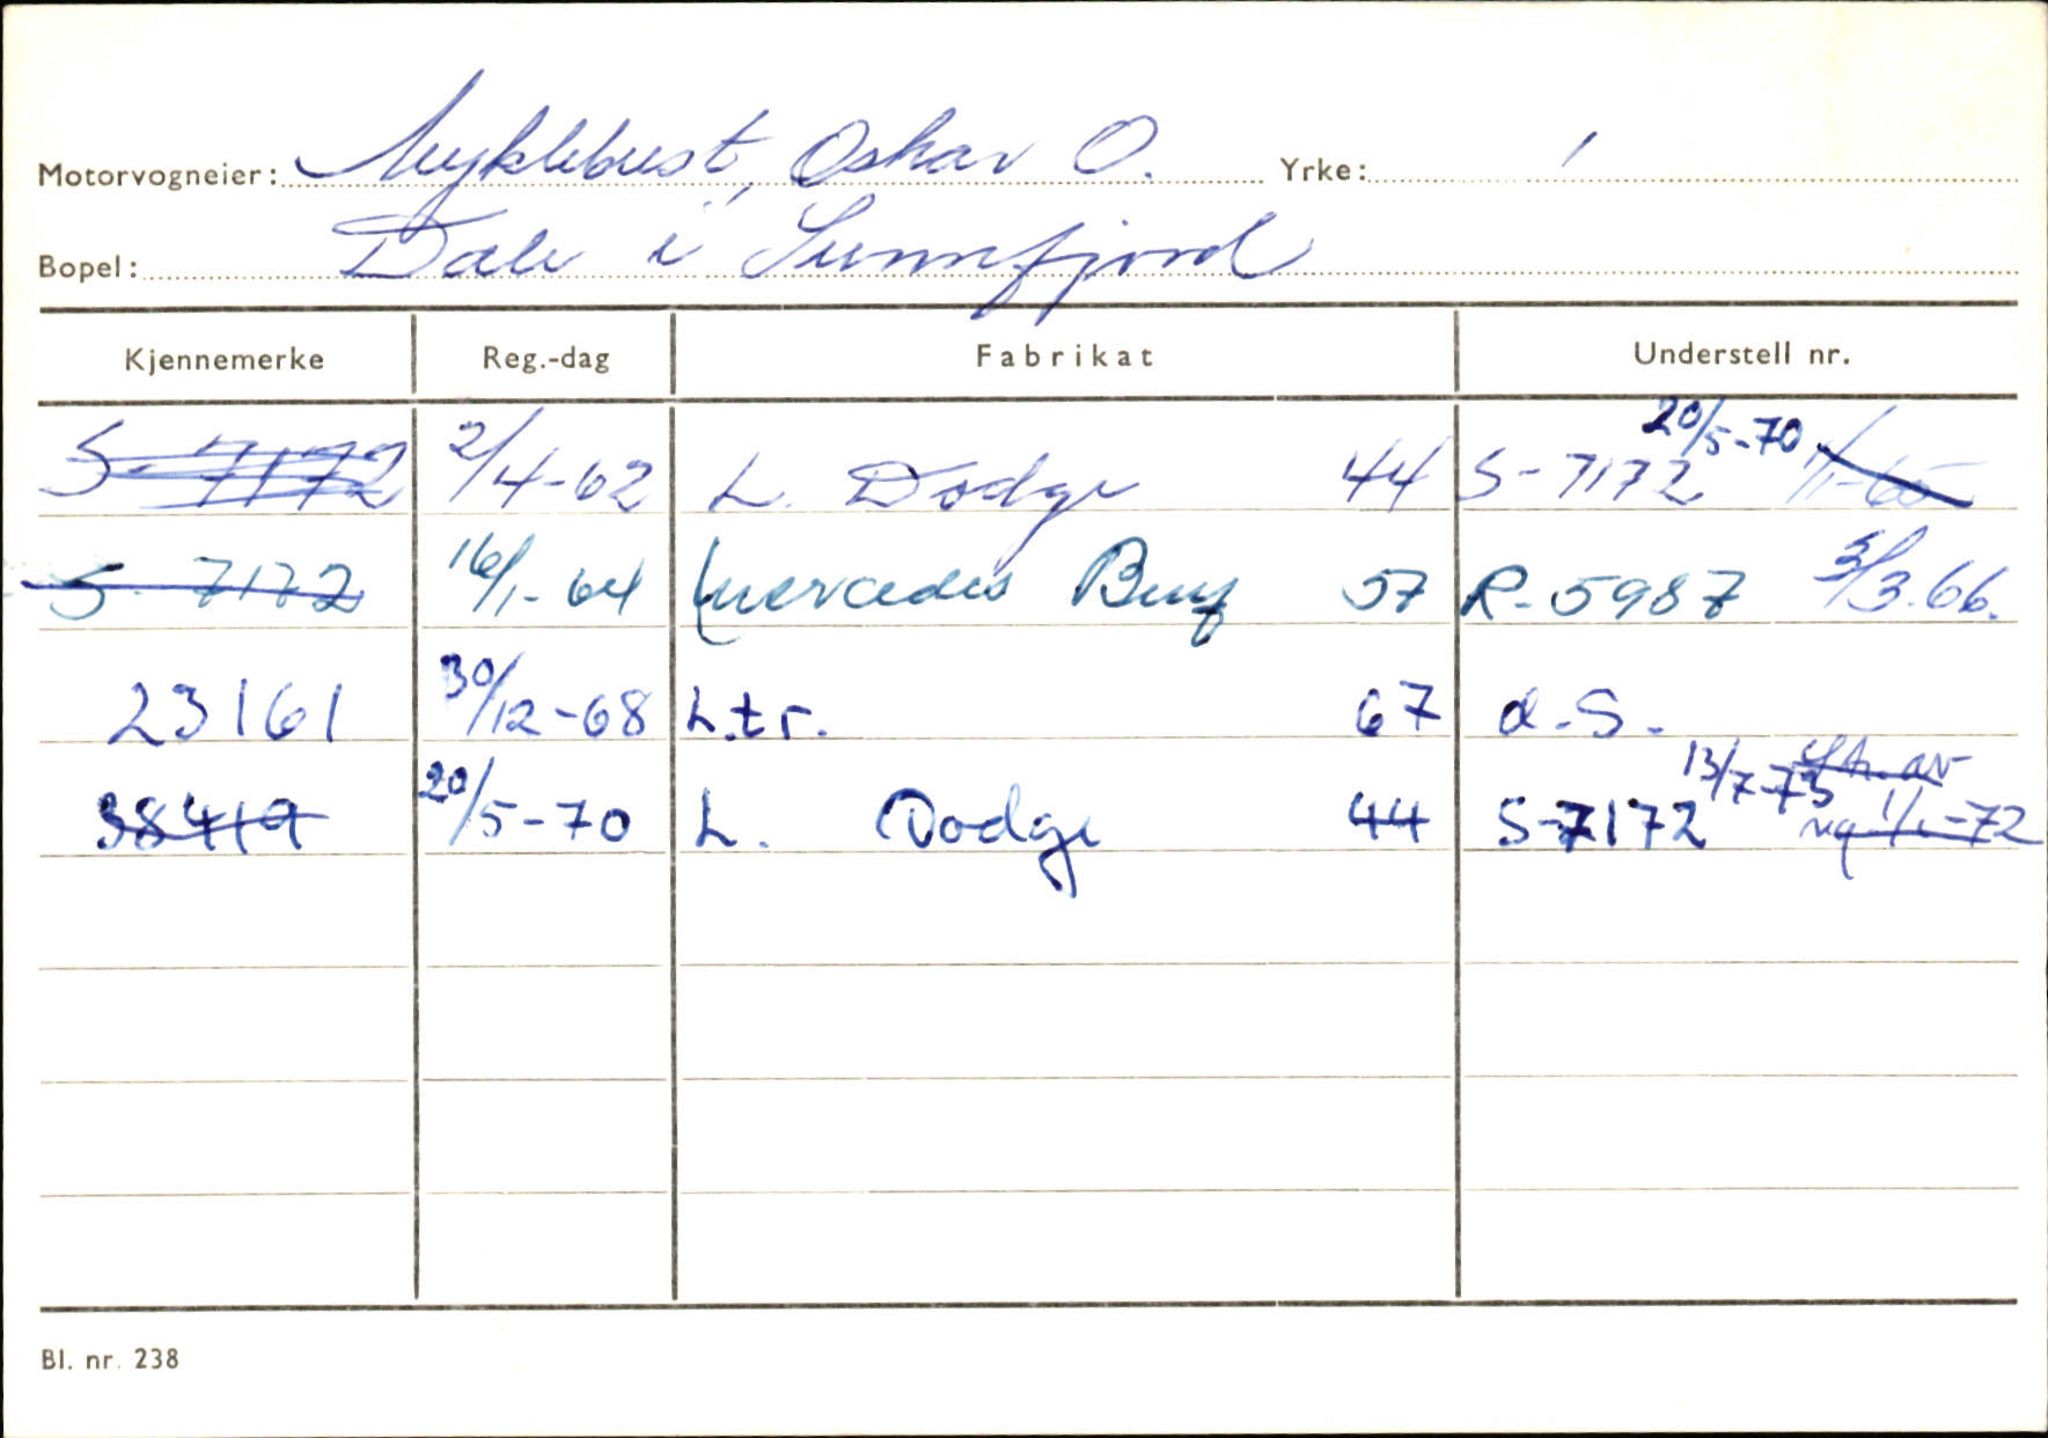 Motorvogneier: Myklebust, Oskar O. Yrke:
Bopel: Dale i Sunnfjord
Kjennemerke Reg.-dag Fabrikat Understell nr.
S-7172 2/4-62 L. Dodge 44 S-7172 20/5-70 1/1-65
S-7172 16/1-64 Mercedes Benz 57 R-5987 3/3.66.
23161 30/12-68 L.tr. 67 d.S.
38419 20/5-70 L. Dodge 44 S-7172 13/7-73 1/1-72
Bl. nr. 238